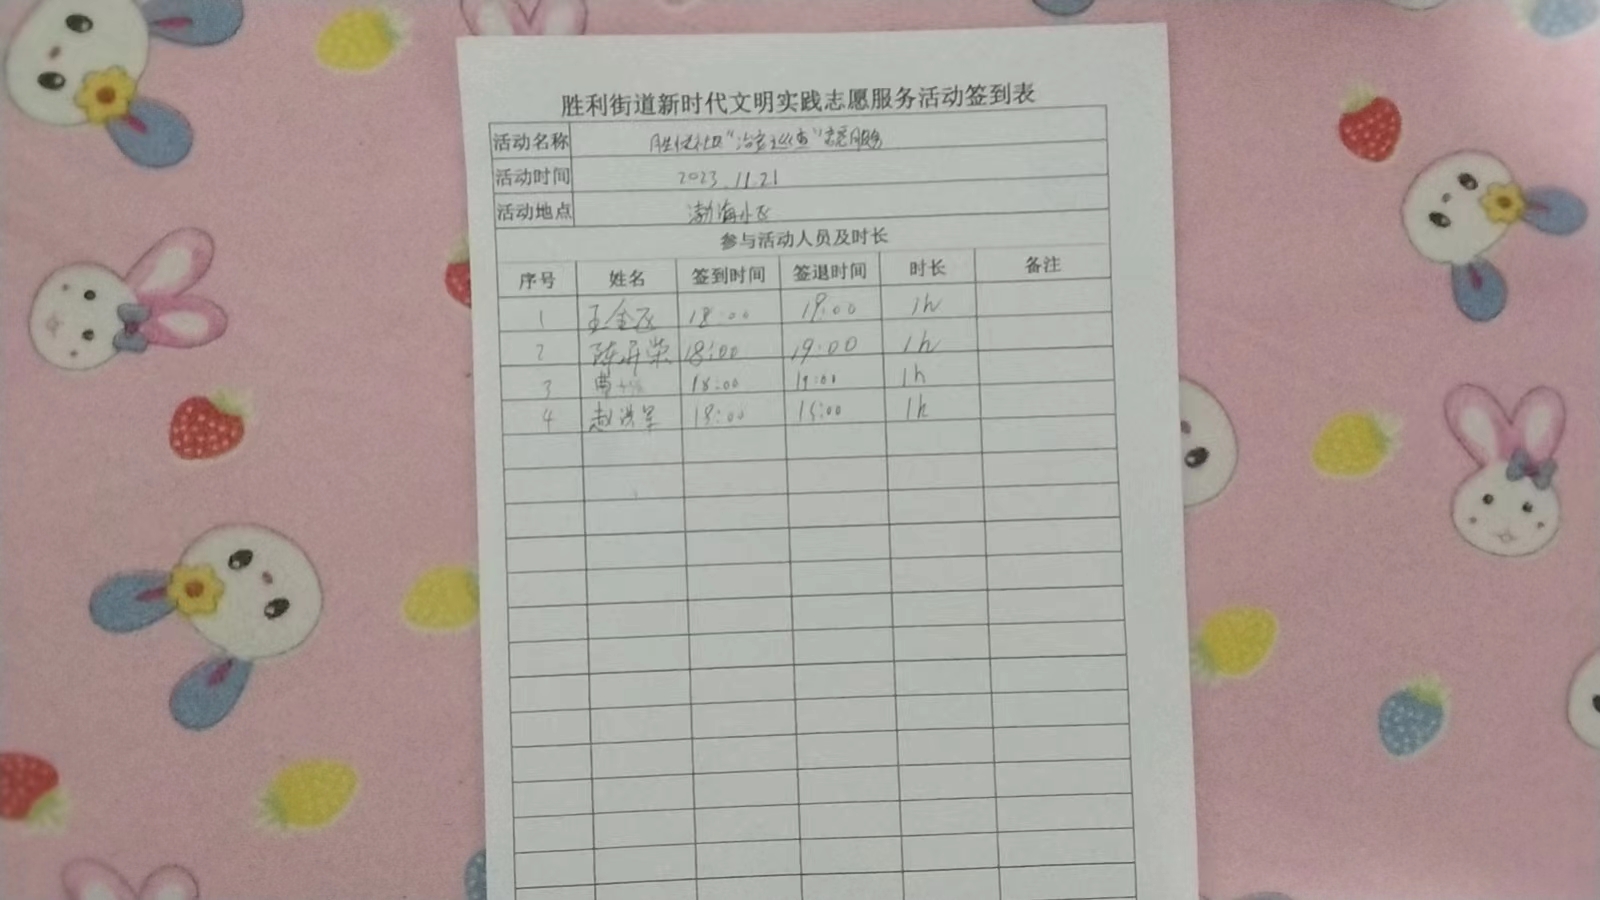 胜利街道新时代文明实践志愿服务活动签到表
活动名称 胜优社区“治安巡查”志愿服务
活动时间 2023.11.21
活动地点 渤海小区
参与活动人员及时长
序号 姓名 签到时间 签退时间 时长 备注
1 王金 18:00 19:00 1h
2 陈 荣 18:00 19:00 1h
3 曹 18:00 19:00 1h
4 赵洪军 1h